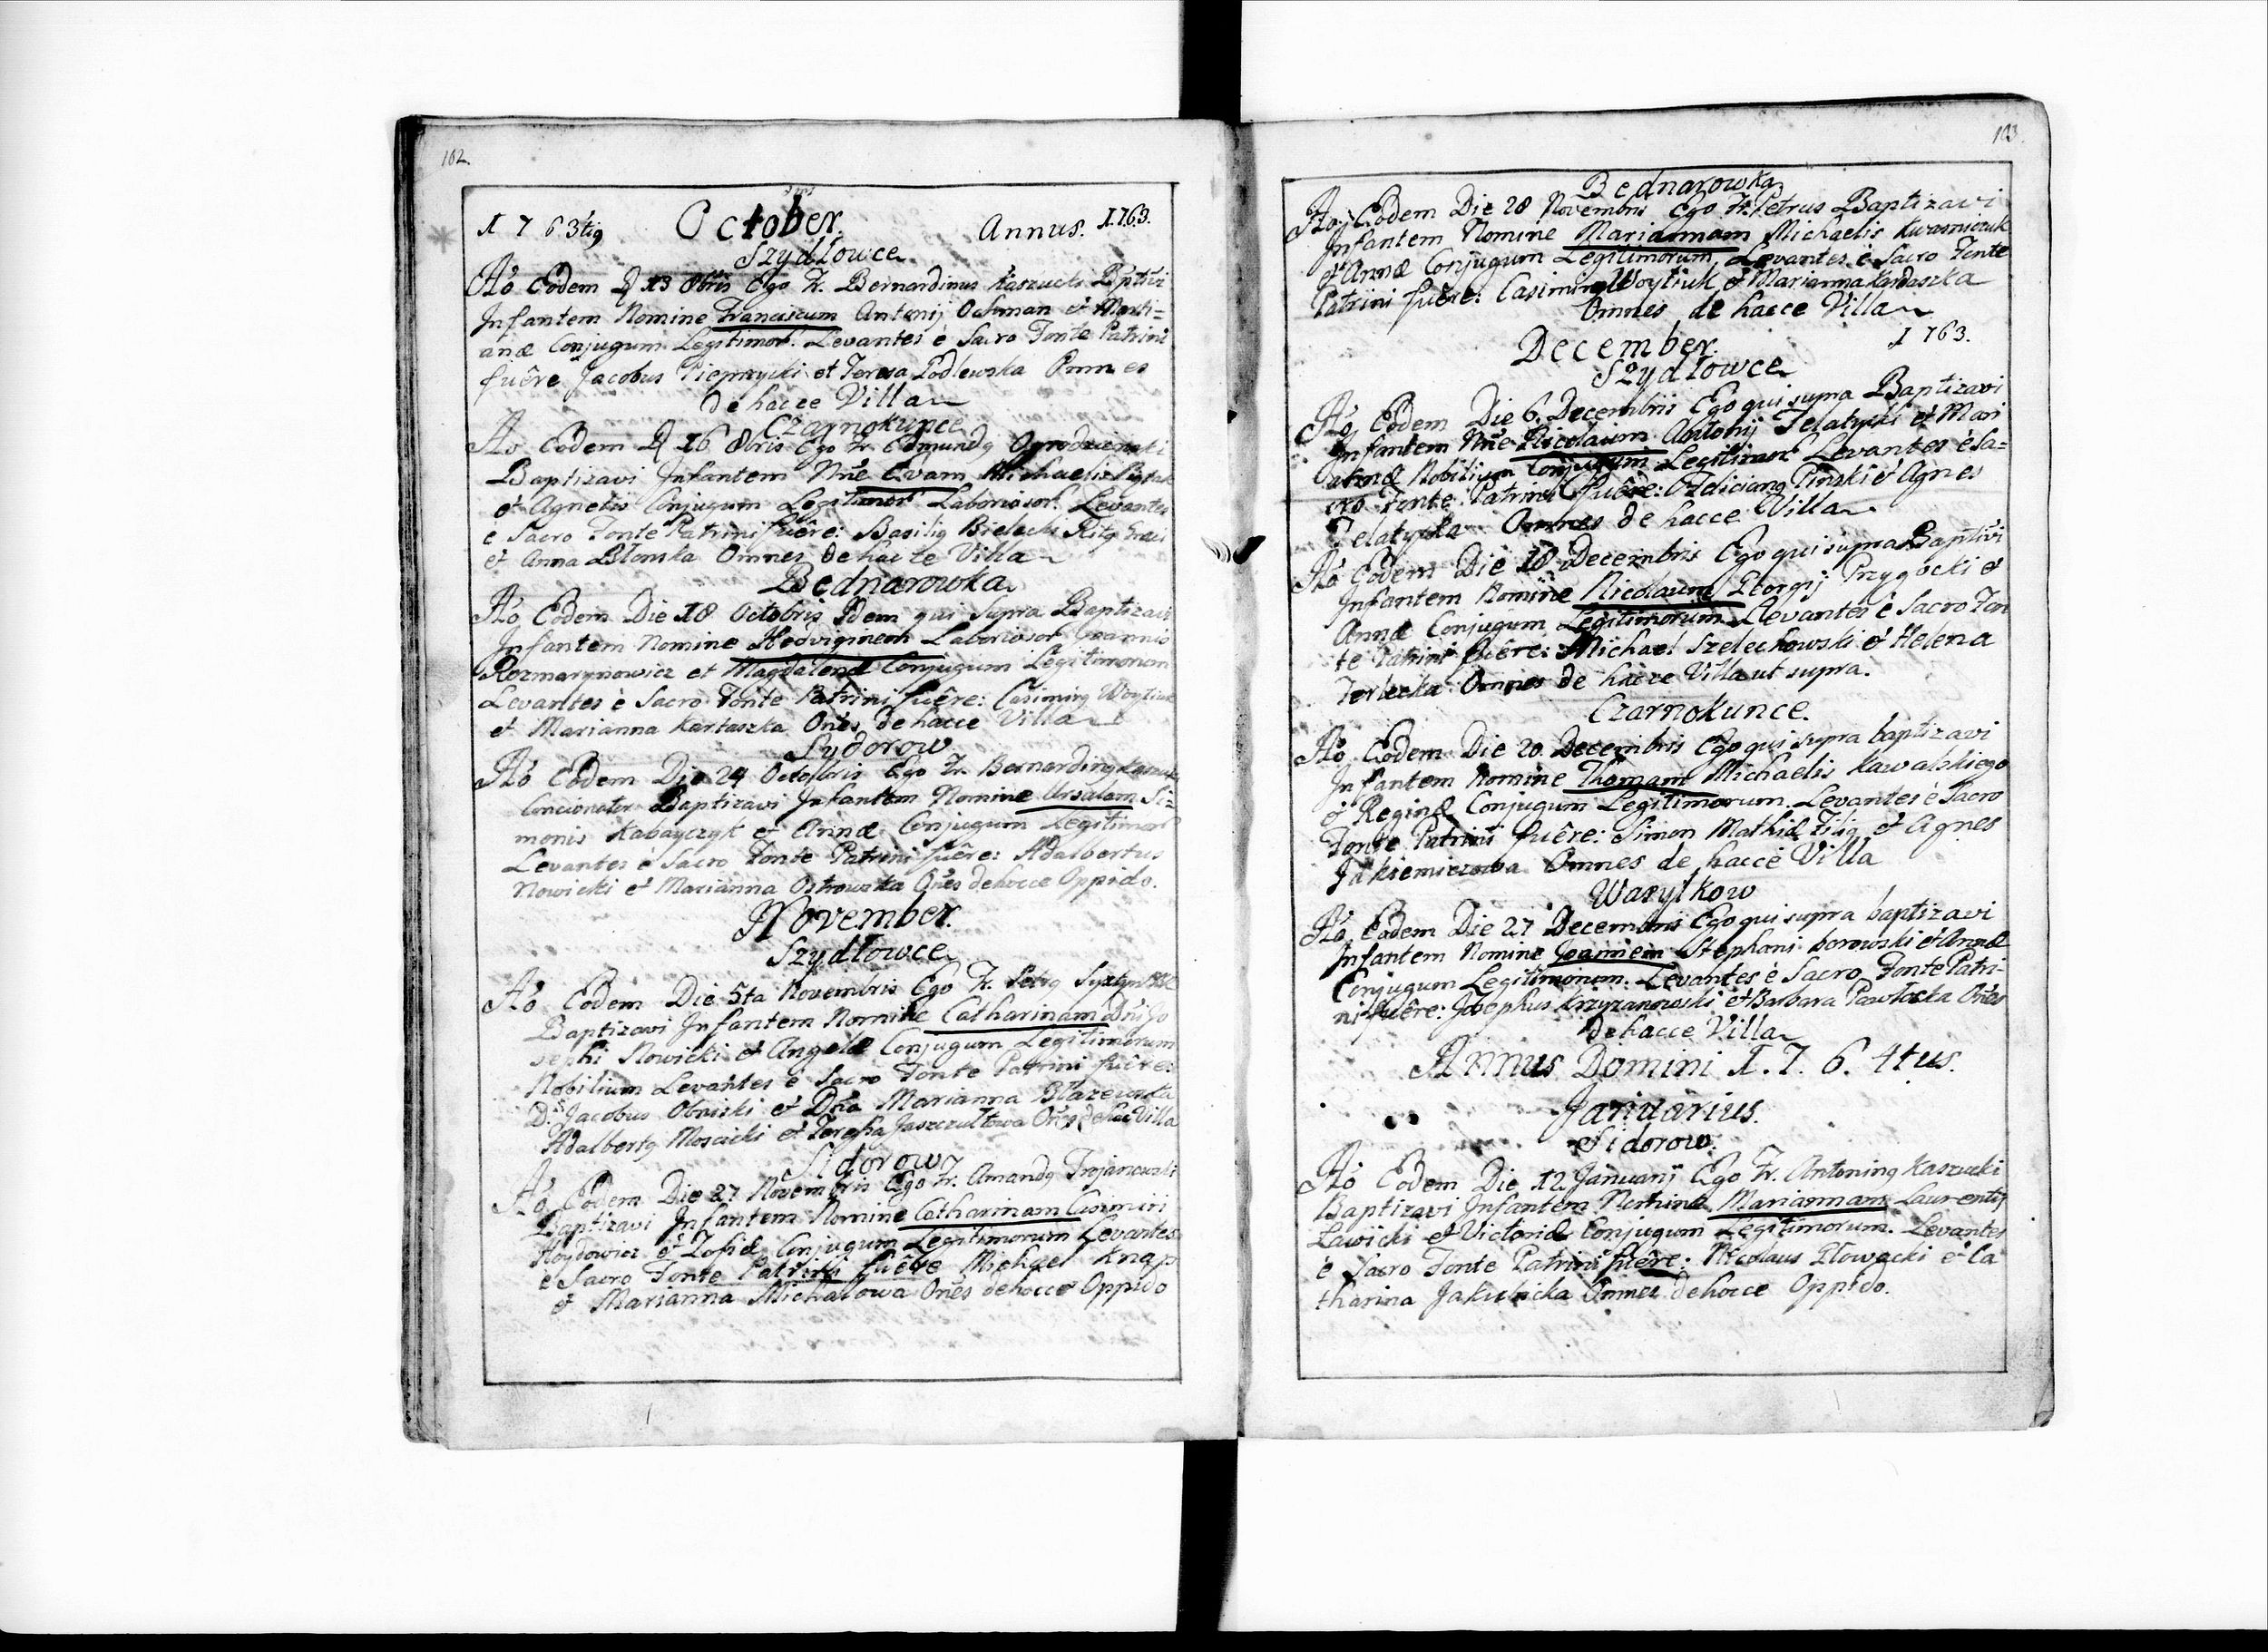 102.
1763tig October. Annus. 1763.
Szydłowce
Aō Eodem D 13 8bris Ego Fr. Bernardinus Kaszucki Bptizi
Infantem Nomine Franciscum Antonij Ochman et Marti=
anæ Conjugum Legitimor. Levantes è Sacro Fonte Patrini
fuêre Jacobus Pieprzycki et Teresa Podlewska Omnes
de hacce Villa
Czarnokunce
Aō Eodem D 16 8bris Ego Fr. Edmundg Ogrodzienski
Baptizavi Infantem Nñe Evam Michaelis
et Agnetis Conjugum Legitimor Laboriosor. Levantes
è Sacro Fonte Patrini fuêre: Basilig Bielecki Ritg Græci
et Anna Błonska Omnes de hacce Villa
Bednarowka
Aō Eodem Die 18 Octobris Idem qui Supra Baptizavi
Infantem Nomine Hedviginem Laboriosor Joannis
Rozmarynowicz et Magdalenæ Conjugum Legitimorum
Levantes è Sacro Fonte Patrini fuêre: Casimirg Woytiuk
et Marianna Kartaszka Oñes de hacce Villa
Sydorow
Aō Eodem Die 24 Octobris Ego Fr. Bernarding Kaszucki
Concionator Baptizavi Infantem Nomine Ursalam Si=
monis Kabayczyk et Annæ Conjugum Legitimor
Levantes è Sacro Fonte Patrini fuêre: Adalbertus
Nowicki et Marianna Ostrowska Oñes de hocce Oppido.
November.
Szydłowce
Aō Eodem Die 5ta Novembris Ego Fr. Petrg
Baptizavi Infantem Nomine Catharinam Dñi Jo
sephi Nowicki et Angelæ Conjugum Legitimorum
Nobilium Levantes è Sacro Fonte Patrini fuêre:
D. Jacobus Obniski et Dña Marianna Błazewska
Adalbertg Moscicki et Teressa Jaszczułtowa Oñes de hac Villa
Sidorow
Aō Eodem Die 27 Novembris Ego Fr. Amandg Trojanowski
Baptizavi Infantem Nomine Catharinam Casimiri
Hoydowicz et Zofiæ Conjugum Legitimorum Levantes
è Sacro Fonte Patrini fuêre Michael Knap
et Marianna Michałowa Oñes de hocce Oppido
103.
Bednarowka
Aō Eodem Die 28 Novembris Ego Fr. Petrus Baptizavi
Infantem Nomine Mariannam Michaelis Kwasniczuk
et Annæ Conjugum Legitimorum, Levantes è Sacro Fonte
Patrini fuêre: Casimirg Woytiuk et Marianna Kardaszka
Omnes de hacce Villa
December. 1763.
Szydłowce
Aō Eodem Die 6. Decembris Ego qui supra Baptizavi
Infantem Nñe Nicolaum Antonij Telatycki et Mari
annæ Nobilium Conjugum Legitimor Levantes è Sa=
cro Fonte Patrini fuêre: Feliciang Pinski et Agnes
Telatycka Omnes de hacce Villa
Aō Eodem Die 18 Decembris Ego qui supra Baptivi
Infantem Nomine Nicolaum Georgij Przygocki et
Annæ Conjugum Legitimorum Levantes è Sacro Fon
te Patrini fuêre: Michael Szelechowski et Helena
Terlecka Omnes de hacce Villa ut supra.
Czarnokunce.
Aō Eodem Die 20. Decembris Ego qui supra baptizavi
Infantem Nomine Thomam Michaelis Kawalskiego
et Reginæ Conjugum Legitimorum. Levantes è Sacro
Fonte Patrini fuêre: Simon Mathiæ Filig et Agnes
Jakiemiczowa Omnes de hacce Villa
Wasylkow
Aō Eodem Die 27 Decembris Ego qui supra baptizavi
Infantem Nomine Joannem Stephani borowski et Annæ
Conjugum Legitimorum. Levantes è Sacro Fonte Patri-
ni fuêre: Josephus Krzyzanowski et Barbara Pawłoska Oñes
de hacce Villa
Annus Domini 1. 7. 6. 4tus.
Januarius.
Sidorow.
Aō Eodem Die 12 Januarij Ego Fr. Antoning Kaszucki
Baptizavi Infantem Nomine Mariannam Laurentij
Ławicki et Victoriæ Conjugum Legitimorum. Levantes
è Sacro Fonte Patrini fuêre: Nicolaus Głowacki et Ca
tharina Jakubicka Omnes de hocce Oppido.